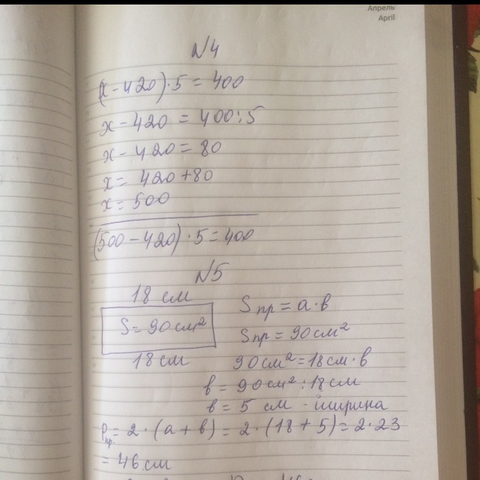 Апрель
April
N4
(x-420)·5=400
x-420=400:5
x-420=80
x=420+80
x=500
(500-420)·5=400
N5
18 см
S=90 см²
18 см
Sпр=a·b
Sпр=90см²
90см²=18см·b
b=90см²:18см
b=5 см -ширина
Pпр=2·(a+b)=2·(18+5)=2·23
=46 см